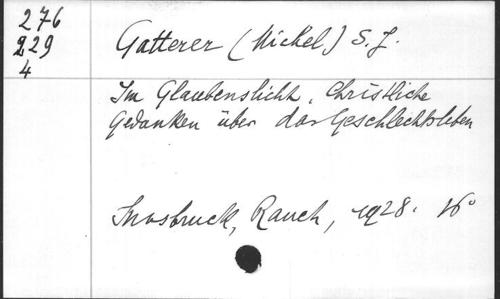 276
229
4
Gatterer (Mickel) S. J.
Im Glaubenslicht. Christliche
Gedanken über das Geschlechtsleben
Innsbruck, Rauch, 1928. 16°